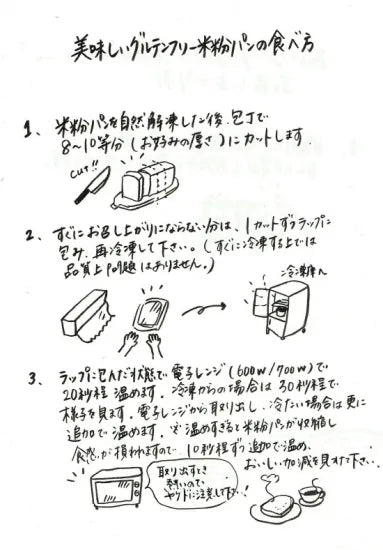 美味しいグルテンフリー米粉パンの食べ方
1、米粉パンを自然解凍した後、包丁で
8〜10等分（お好みの厚さ）にカットします。
cut!!
2、すぐにお召し上がりにならない分は、1カットずつラップに
包み、再冷凍して下さい。（すぐに冷凍する上では
品質上問題はありません。）
冷凍庫へ
3、ラップに包んだ状態で電子レンジ（600w/700w）で
20秒程温めます。冷凍からの場合は30秒程で
様子を見ます。電子レンジから取り出し、冷たい場合は更に
追加で温めます。※温めすぎると米粉パンが収縮し
食感が損われますので、10秒程ずつ追加で温め、
おいしい加減を見つけて下さい。
取り出すとき
熱いので
ヤケドに注意して下さい!